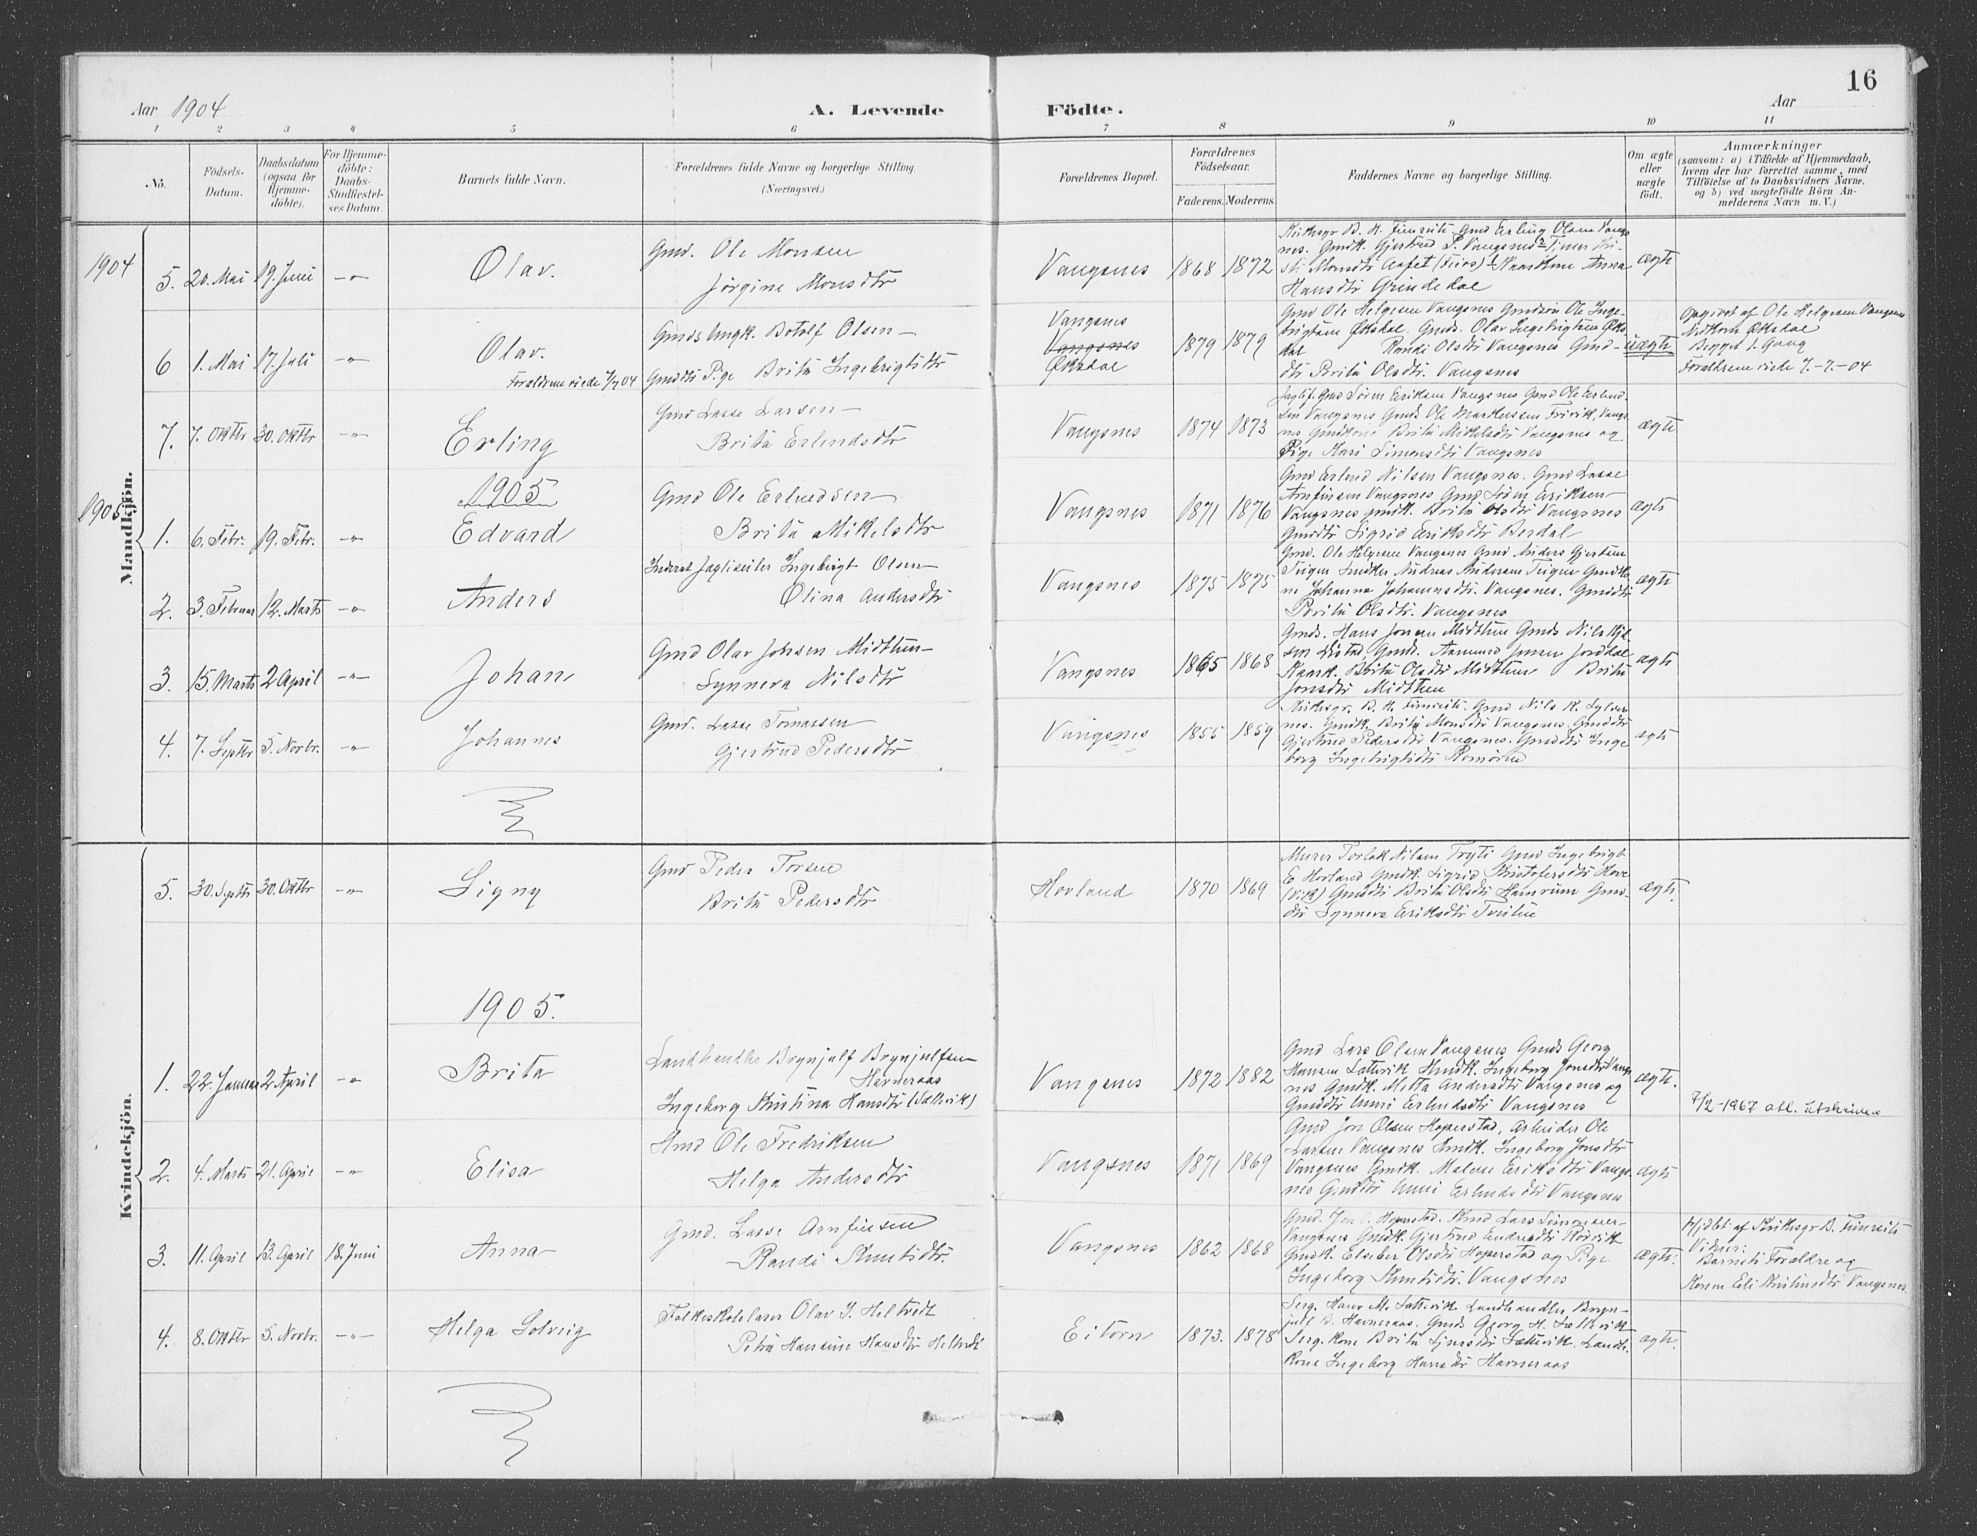 16
Aar 1904
A. Levende Födte.
Aar
1 2 3 4 5 6 7 8 9 10 11
No.
Födsels-Datum.
Daabsdatum (ogsaa for Hjemme-döbte).
For Hjemme-döbte: Daabs-Stadfæstel-ses Datum.
Barnets fulde Navn.
Forældrenes fulde Navne og borgerlige Stilling.
(Næringsvei.)
Forældrenes Bopæl.
Forældrenes Födselsaar.
Faderens. Moderens.
Faddernes Navne og borgerlige Stilling.
Om ægte eller uægte födt.
Anmærkninger
(saasom: a) i Tilfælde af Hjemmedaab,
hvem der har forrettet samme, med
Tilföielse af to Daabsvidners Navne,
og b) ved uægtefödte Börn An-
melderens Navn m. V.)
Mandkjön.
1904
5. 20. Mai 19. Juni -"- Olav.
Gmd. Ole Monsen
Jørgine Monsdtr
Vangsnes 1868 1872
Kirksgr B. H. Finreite Gmd Erling Olsen Vangs
nes. Gmdk. Gjertrud P. Vangsnes
Hansdtr Grindedal
ægte
6 1. Mai 17. Juli -"- Olav.
Forældrene viede 7/7 04
Gmds Ungk. Botolf Olsen
Gmdstr Pige Brita Ingebrigtsdtr
Vangsnes
Vangsnes
Øksdal
1879 1879
Gmd Ole Helgesen Vangsnes Gmdsøn Ole Inge-
brigtsen Øksdal. Gmds. Olav Ingebrigtsen Øks-
dal Randi Olsdtr Vangsnes Gmd-
dtr Brita Olsdtr. Vangsnes
uægte
Opgivet af Ole Helgesen Vangsnes
Begges 1. Gang
Forældrene viede 7.-7.-04
7. 7. Oktbr 30. Oktbr -"- Erling
Gmd Lasse Larsen
Brita Erlendsdtr
Vangsnes 1874 1873
Gmd Søren Eriksen Vangsnes Gmd Ole Erlend-
sen Vangsnes Gmds Ole
Brita Mikelsdtr Vangsnes og
Pige Kari Simonsdtr Vangsnes
ægte
1905
1905
1. 6. Febr. 19. Febr. -"- Edvard
Gmd Ole Erlendsen
Brita Mikelsdtr
Vangsnes 1871 1876
Gmd Erlend Nilsen Vangsnes. Gmd Lasse
Arnfinsen Vangsnes Gmd Søren Eriksen
Vangsnes Gmdk. Brita Olsdtr Vangsnes
Gmddtr Sigrid Eriksdtr Berdal
ægte
2. 3. Februar 12. Marts -"- Anders
Inderst Ingebrigt Olsen
Olina Andersdtr
Vangsnes 1875 1875
Gmd. Ole Helgesen Vangsnes Gmd Anders Gjertsen
Teigen Andreas Andersen Teigen Gmdko-
ne Johanna Johannesdtr. Vangsnes. Gmddtr
Brita Olsdtr. Vangsnes
ægte
3. 15. Marts 2 April -"- Johan
Gmd Olav Johsen Midthun
Synneva Nilsdtr
Vangsnes 1865 1868
Gmds. Hans Jonsen Midthun Gmds Nils
Brita Olsdtr Midthun Brita
Jonsdtr Midthun
ægte
4. 7. Septbr 5. Novbr. -"- Johannes
Gmd. Lasse Tomassen
Gjertrud Pedersdtr
Vangsnes 1855 1859
Kirksgr. B. H. Finreite. Gmd Nils H. Sylvar-
nes. Gmdk. Brita Monsdtr Vangsnes. Gmddtr
Gjertrud Pedersdtr Vangsnes. Gmddtr Inge
borg Ingebrigtsdtr
ægte
Kvindekjön.
5. 30. Septbr 30. Oktbr -"- Signy
Gmd Peder Torsen
Brita Pedersdtr
Hovland 1870 1869
Murer Torleik Nilsen Tryti Gmd Ingebrigt
E Hovland Gmdk. Sigrid Kristofersdtr Hove
(Vik) Gmddtr Brita Olsdtr Hamrum Gmd-
dtr Synneva Eriksdtr
ægte.
1905.
1. 22. Januar 2 April -"- Brita
Landhandler Brynjulf Brynjulfsen
Havneraas
Ingeborg Kristina Hansdtr (Sætterik)
Vangsnes 1872 1882
Gmd Lars Olsen Vangsnes Gmds Georg
Hansen Sætterik Gmdk. Ingeborg Jonsdtr Vangs
nes Gmdk. Metta Andersdtr Vangsnes og
Gmddtr Anni Erlendsdtr Vangsnes
ægte.
7/2-1967
2. 4. Marts 21. April -"- Elisa
Gmd Ole Fredriksen
Helga Andersdtr
Vangsnes 1871 1869
Gmd Jon Olsen Hoperstad, Arbeider Ole
Larsen Vangsnes Gmdk. Ingeborg Jonsdtr
Vangsnes Gmdk. Malene Eriksdtr Vangs-
nes Gmddtr Anni Erlendsdtr Vangsnes
ægte
3. 11. April 13. April 18. Juni Anna
Gmd. Lasse Arnfinsen
Randi Knutsdtr.
Vangsnes 1862 1868
Gmd. Jon O. Hoperstad. Gmd Lars Simonsen
Vangsnes Gmdk Gjertrud Andersdtr
Gmdk. Elseber Olsdtr Hoperstad og Pige
Ingeborg Knutsdtr. Vangsnes
ægte.
Hjdbt af Kirksgr B. Finreite
Vidner:
Barnets Forældre og
Konen Eli Vangsnes
4. 8. Oktbr 5. Novbr. -"- Helga Solveig
Folkeskolelærer Olav J. Heltvedt
Petra Hansine Hansdtr Heltvedt
Eitorn 1873. 1878
Serg. Hans M. Sætterik Landhandler Bryn-
julf B. Havneraas. Gmds Georg H. Sætterik
Serg. kone Brita Sætterik. Landh.
kone Ingeborg Hansdtr Havneraas
ægte.